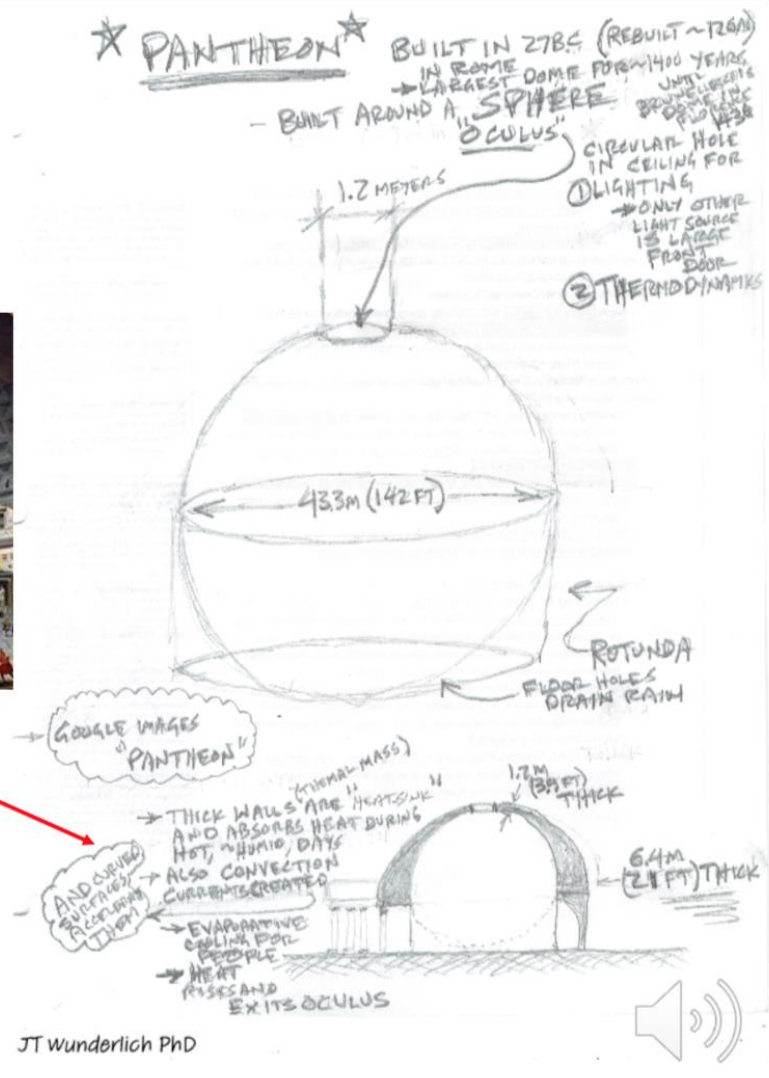 ☆ PANTHEON ☆
BUILT IN 27BC (REBUILT ~126AD)
IN ROME
→ LARGEST DOME FOR ~1400 YEARS
UNTIL
BRUNELLESCHI'S
DOME IN
FLORENCE
1436
- BUILT AROUND A SPHERE
"OCULUS"
CIRCULAR HOLE
IN CEILING FOR
① LIGHTING
→ ONLY OTHER
LIGHT SOURCE
IS LARGE
FRONT
DOOR
② THERMODYNAMICS
1.2 METERS
43.3M (142 FT)
ROTUNDA
FLOOR HOLES
DRAIN RAIN
→ GOOGLE IMAGES
"PANTHEON"
(THEMAL MASS)
→ THICK WALLS ARE "HEATSINK"
AND ABSORBS HEAT DURING
HOT, ~HUMID, DAYS
→ ALSO CONVECTION
CURRENTS CREATED
AND CURVED
SURFACES
ACCELERATE
THEM
→ EVAPORATIVE
COOLING FOR
PEOPLE
→ HEAT
RISES AND
EXITS OCULUS
1.2M
(3.9 FT)
THICK
6.4M
(21 FT) THICK
JT Wunderlich PhD